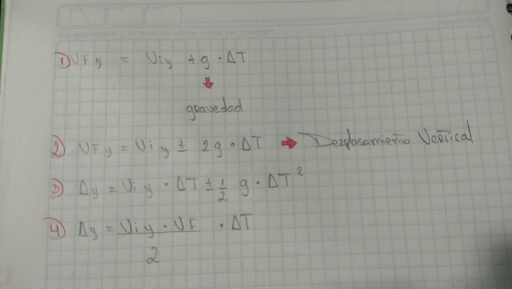 1) VFy = Viy + g · ΔT
gravedad
2) VFy = Viy ± 2g · ΔT → Dezplasamiento Vertical
3) Δy = Viy · ΔT ± 1/2 g · ΔT²
4) Δy = Viy · VF / 2 · ΔT